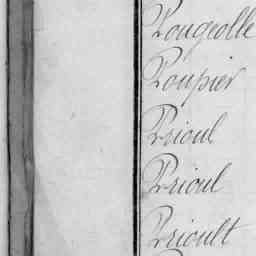 Pougeolle
Poupier
Prioul
Prioul
Prioult